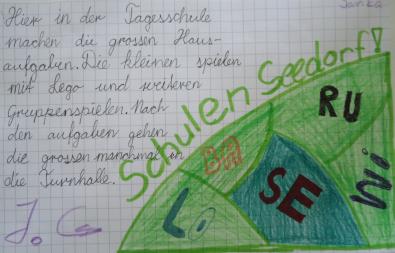 Hier in der Tagesschule
machen die grossen Haus-
aufgaben. Die kleinen spielen
mit Lego und weiteren
Gruppenspielen. Nach
den aufgaben gehen
die grossen manchmal in
die Turnhalle.
J. C
Janka
Schulen Seedorf!
RU
BA
SE
Lo
Wi